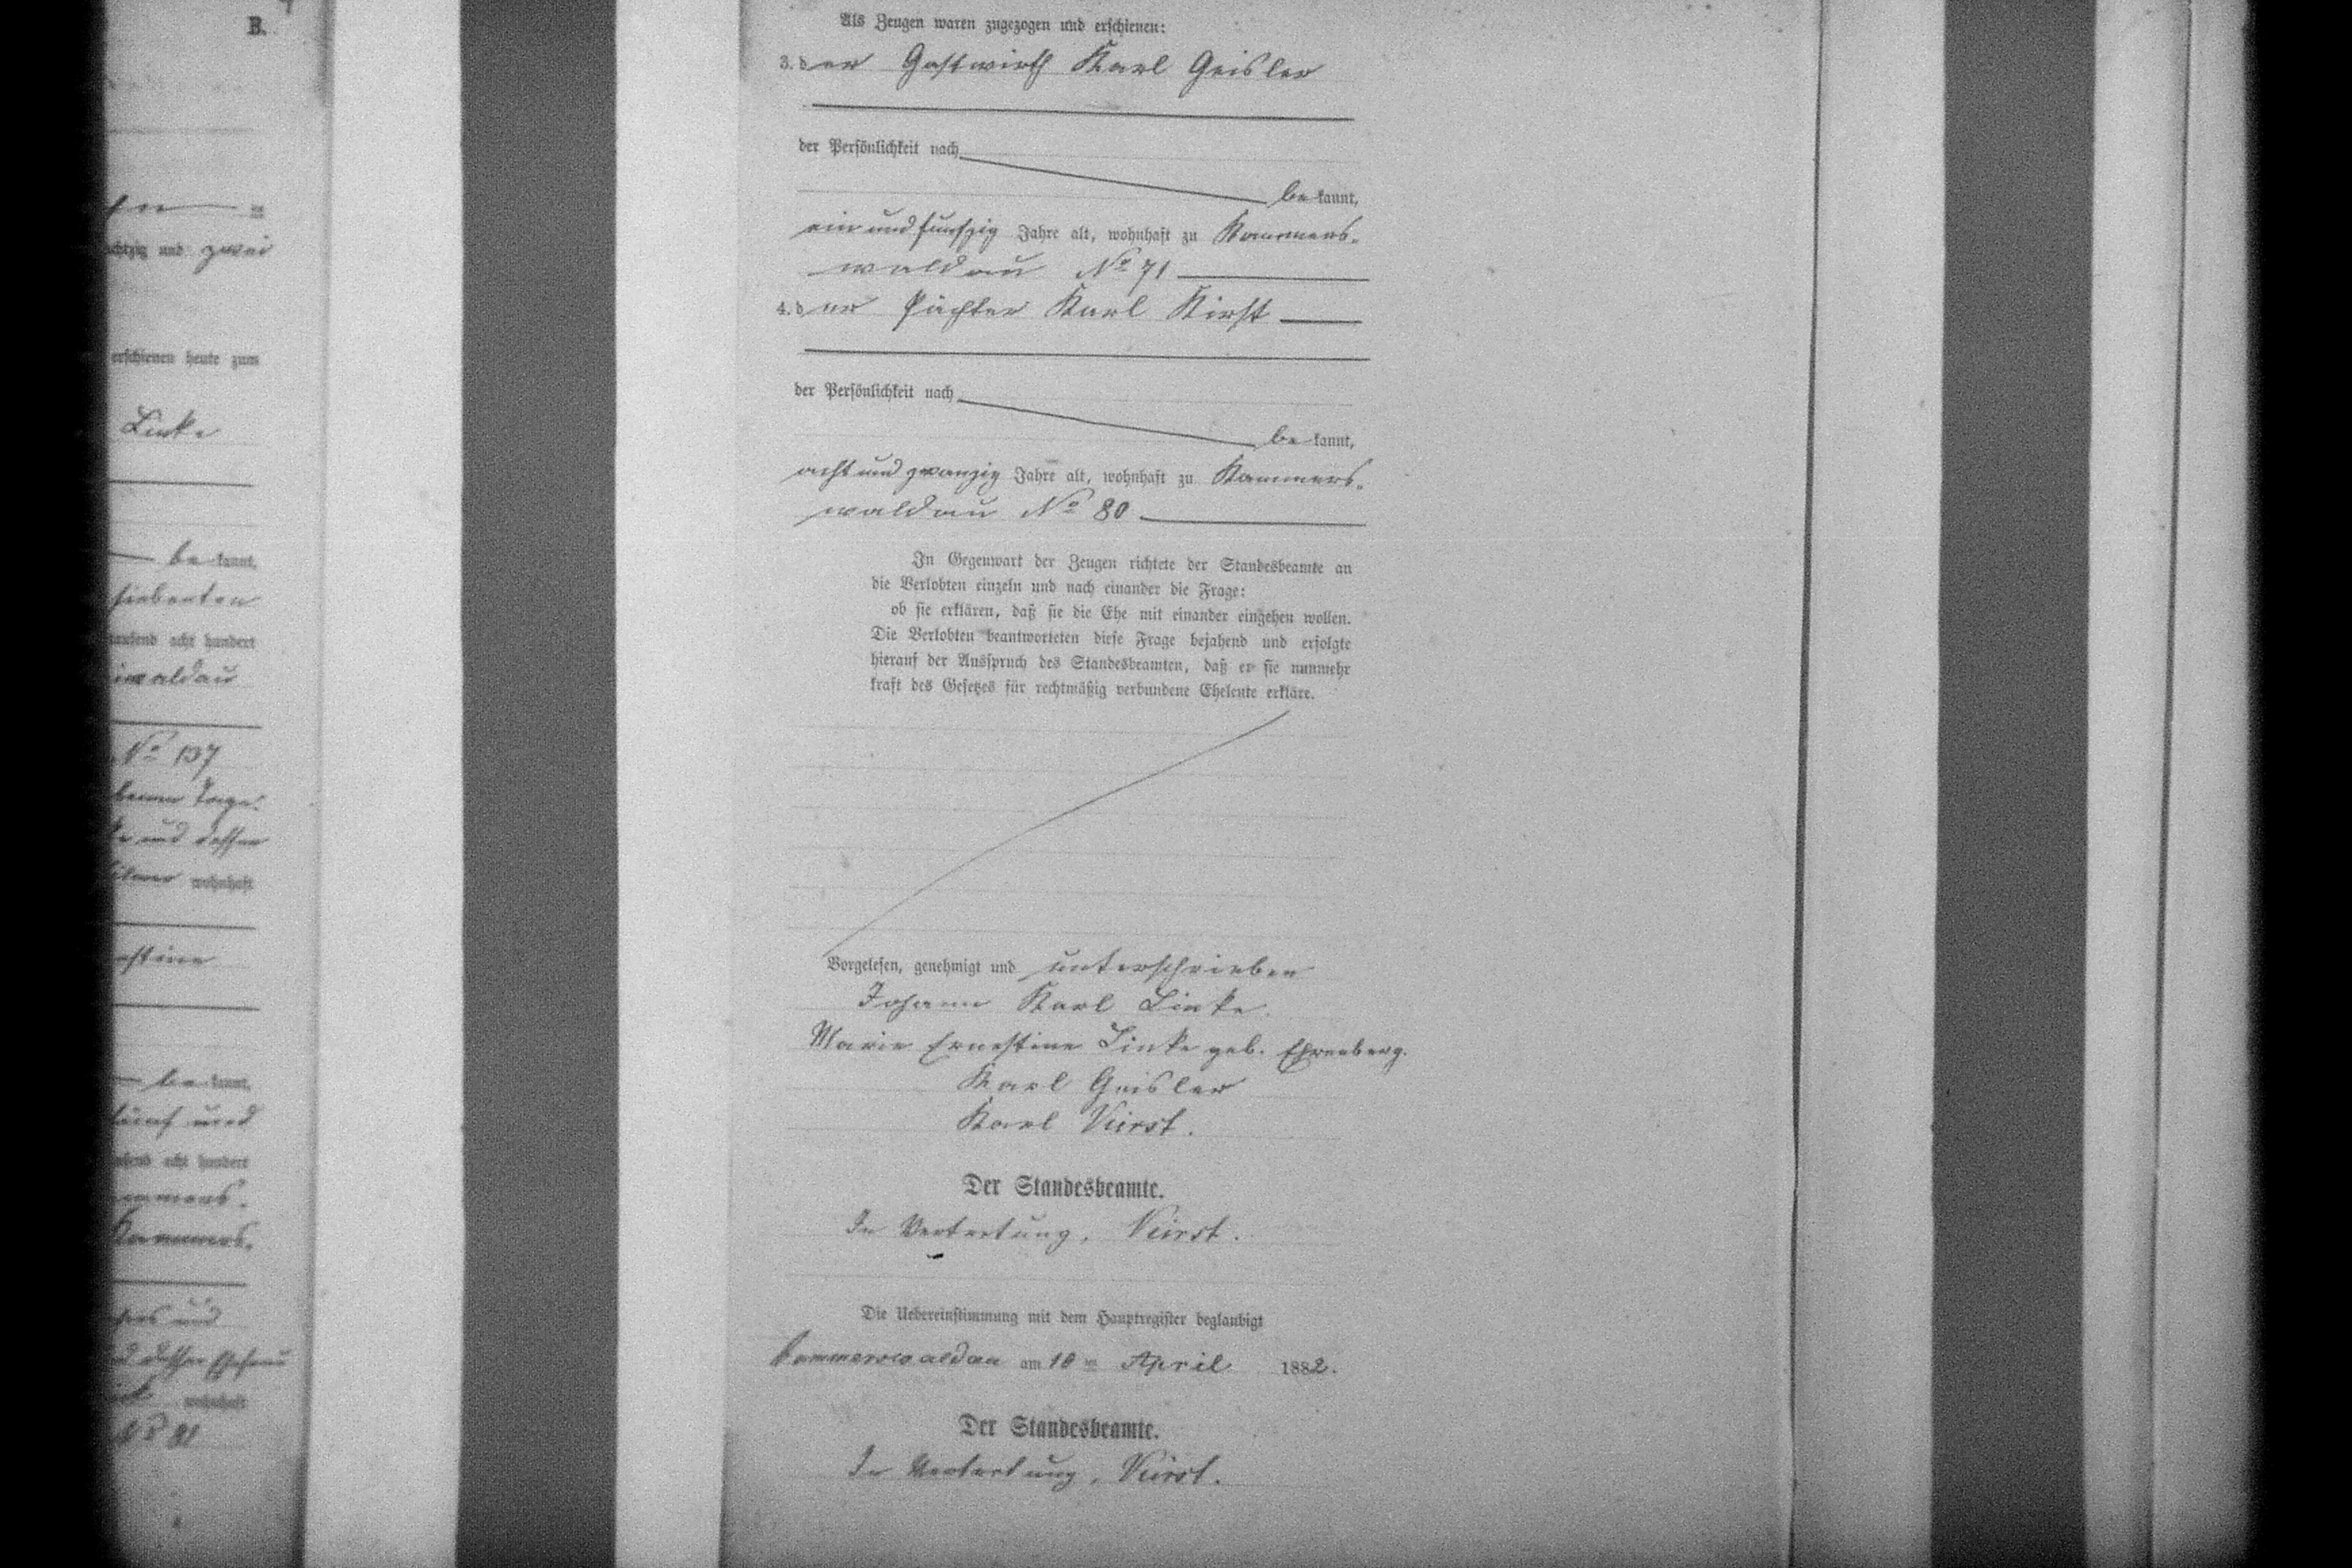 B.
achtzig und zwei
erschienen heute zum
Linke
be kannt,
siebenten
tausend acht hundert
waldau
No 137
Tage.
und dessen
wohnhaft
estine
be kannt,
fünf und
tausend acht hundert
Kammers-
und
wohnhaft
No 81
Als Zeugen waren zugezogen und erschienen:
3. der Gastwirth Karl Geisler
der Persönlichkeit nach
be kannt,
ein und funfzig Jahre alt, wohnhaft zu Kammers-
waldau No 71
4. der Pächter Karl Kirst
der Persönlichkeit nach
be kannt,
acht und zwanzig Jahre alt, wohnhaft zu Kammers-
waldau No 80
In Gegenwart der Zeugen richtete der Standesbeamte an
die Verlobten einzeln und nach einander die Frage:
ob sie erklären, daß sie die Ehe mit einander eingehen wollen.
Die Verlobten beantworteten diese Frage bejahend und erfolgte
hierauf der Ausspruch des Standesbeamten, daß er sie nunmehr
kraft des Gesetzes für rechtmäßig verbundene Eheleute erkläre.
Vorgelesen, genehmigt und unterschrieben
Johann Karl Linke.
Marie Ernestine Linke geb. Ehrenberg.
Karl Geisler
Karl Kirst.
Der Standesbeamte.
In Vertretung. Kirst.
Die Uebereinstimmung mit dem Hauptregister beglaubigt
Kammerswaldau am 10 ten April 1882.
Der Standesbeamte.
In Vertretung. Kirst.